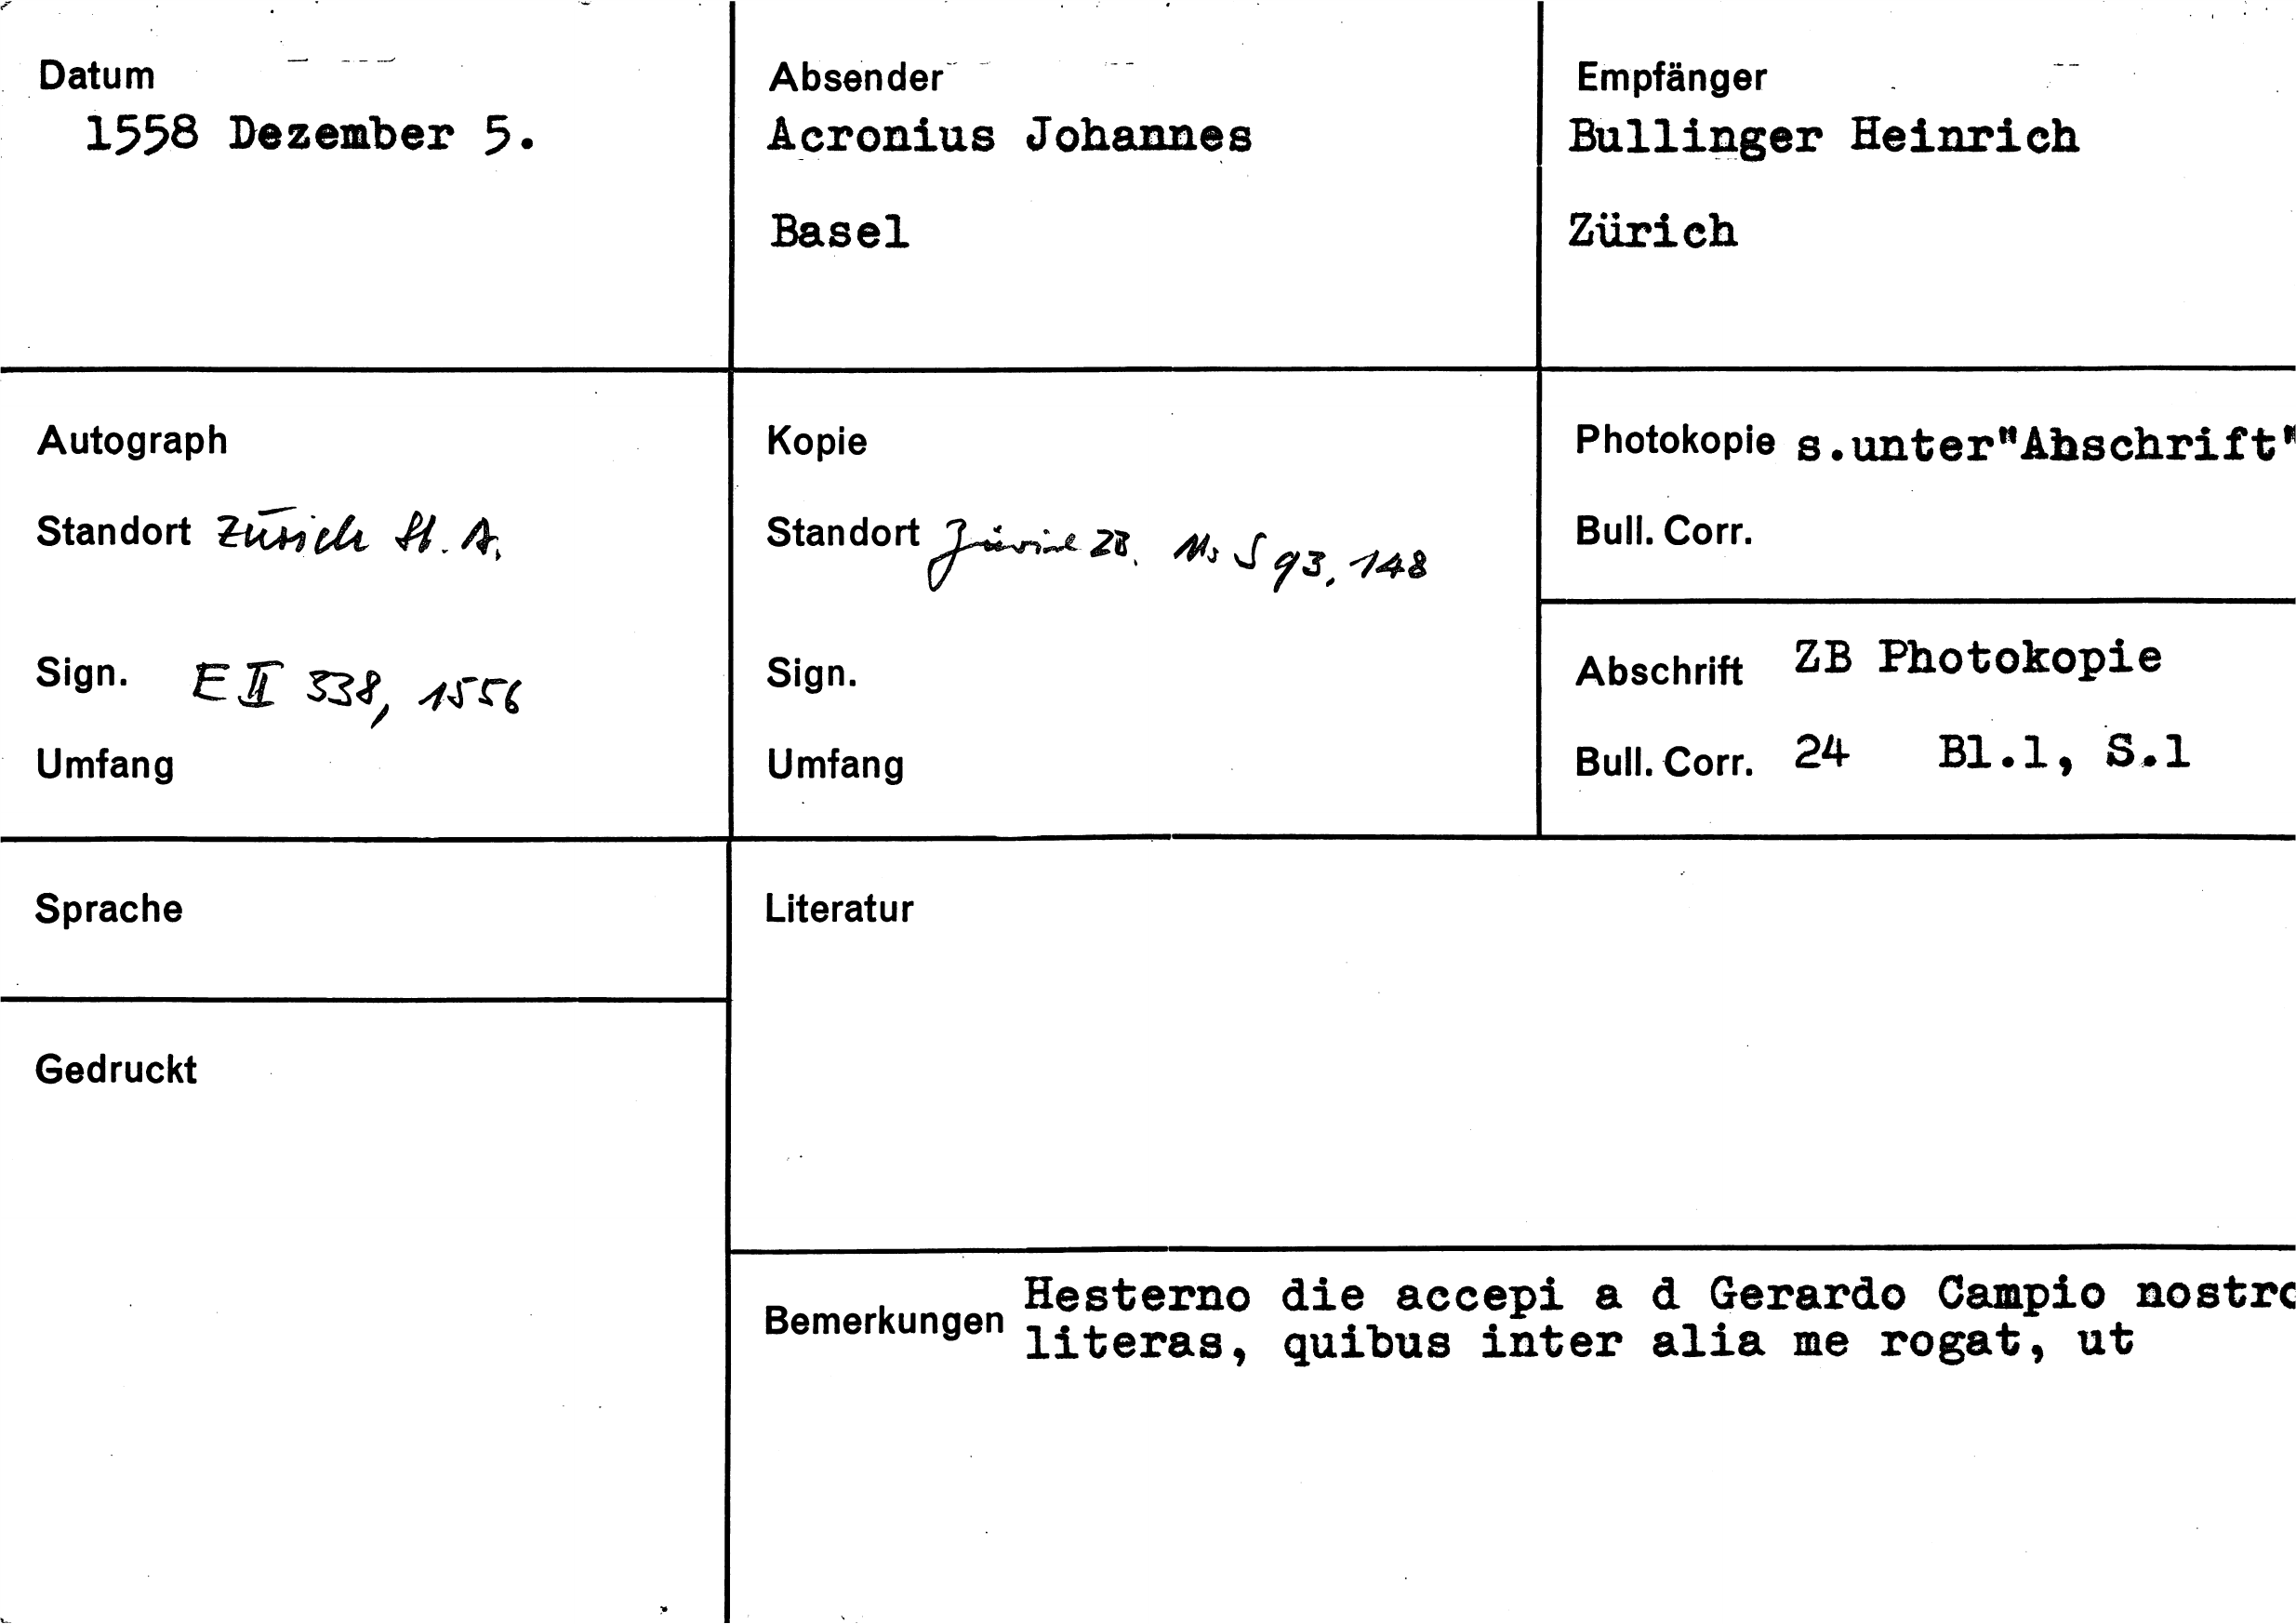 Datum
1558 Dezember 5.
Absender
Acronius Johannes
Basel
Empfänger
Bullinger Heinrich
Zürich
Autograph
Standort Zürich St. A.
Sign. E II 338, 1556
Umfang
Kopie
Standort Zürich ZB. Ms S 93, 148
Sign.
Umfang
Photokopie s.unter"Abschrift"
Bull. Corr.
Abschrift ZB Photokopie
Bull. Corr. 24 Bl.1, S.1
Sprache
Literatur
Gedruckt
Bemerkungen Hesterno die accepi a d Gerardo Campio nostro
literas, quibus inter alia me rogat, ut